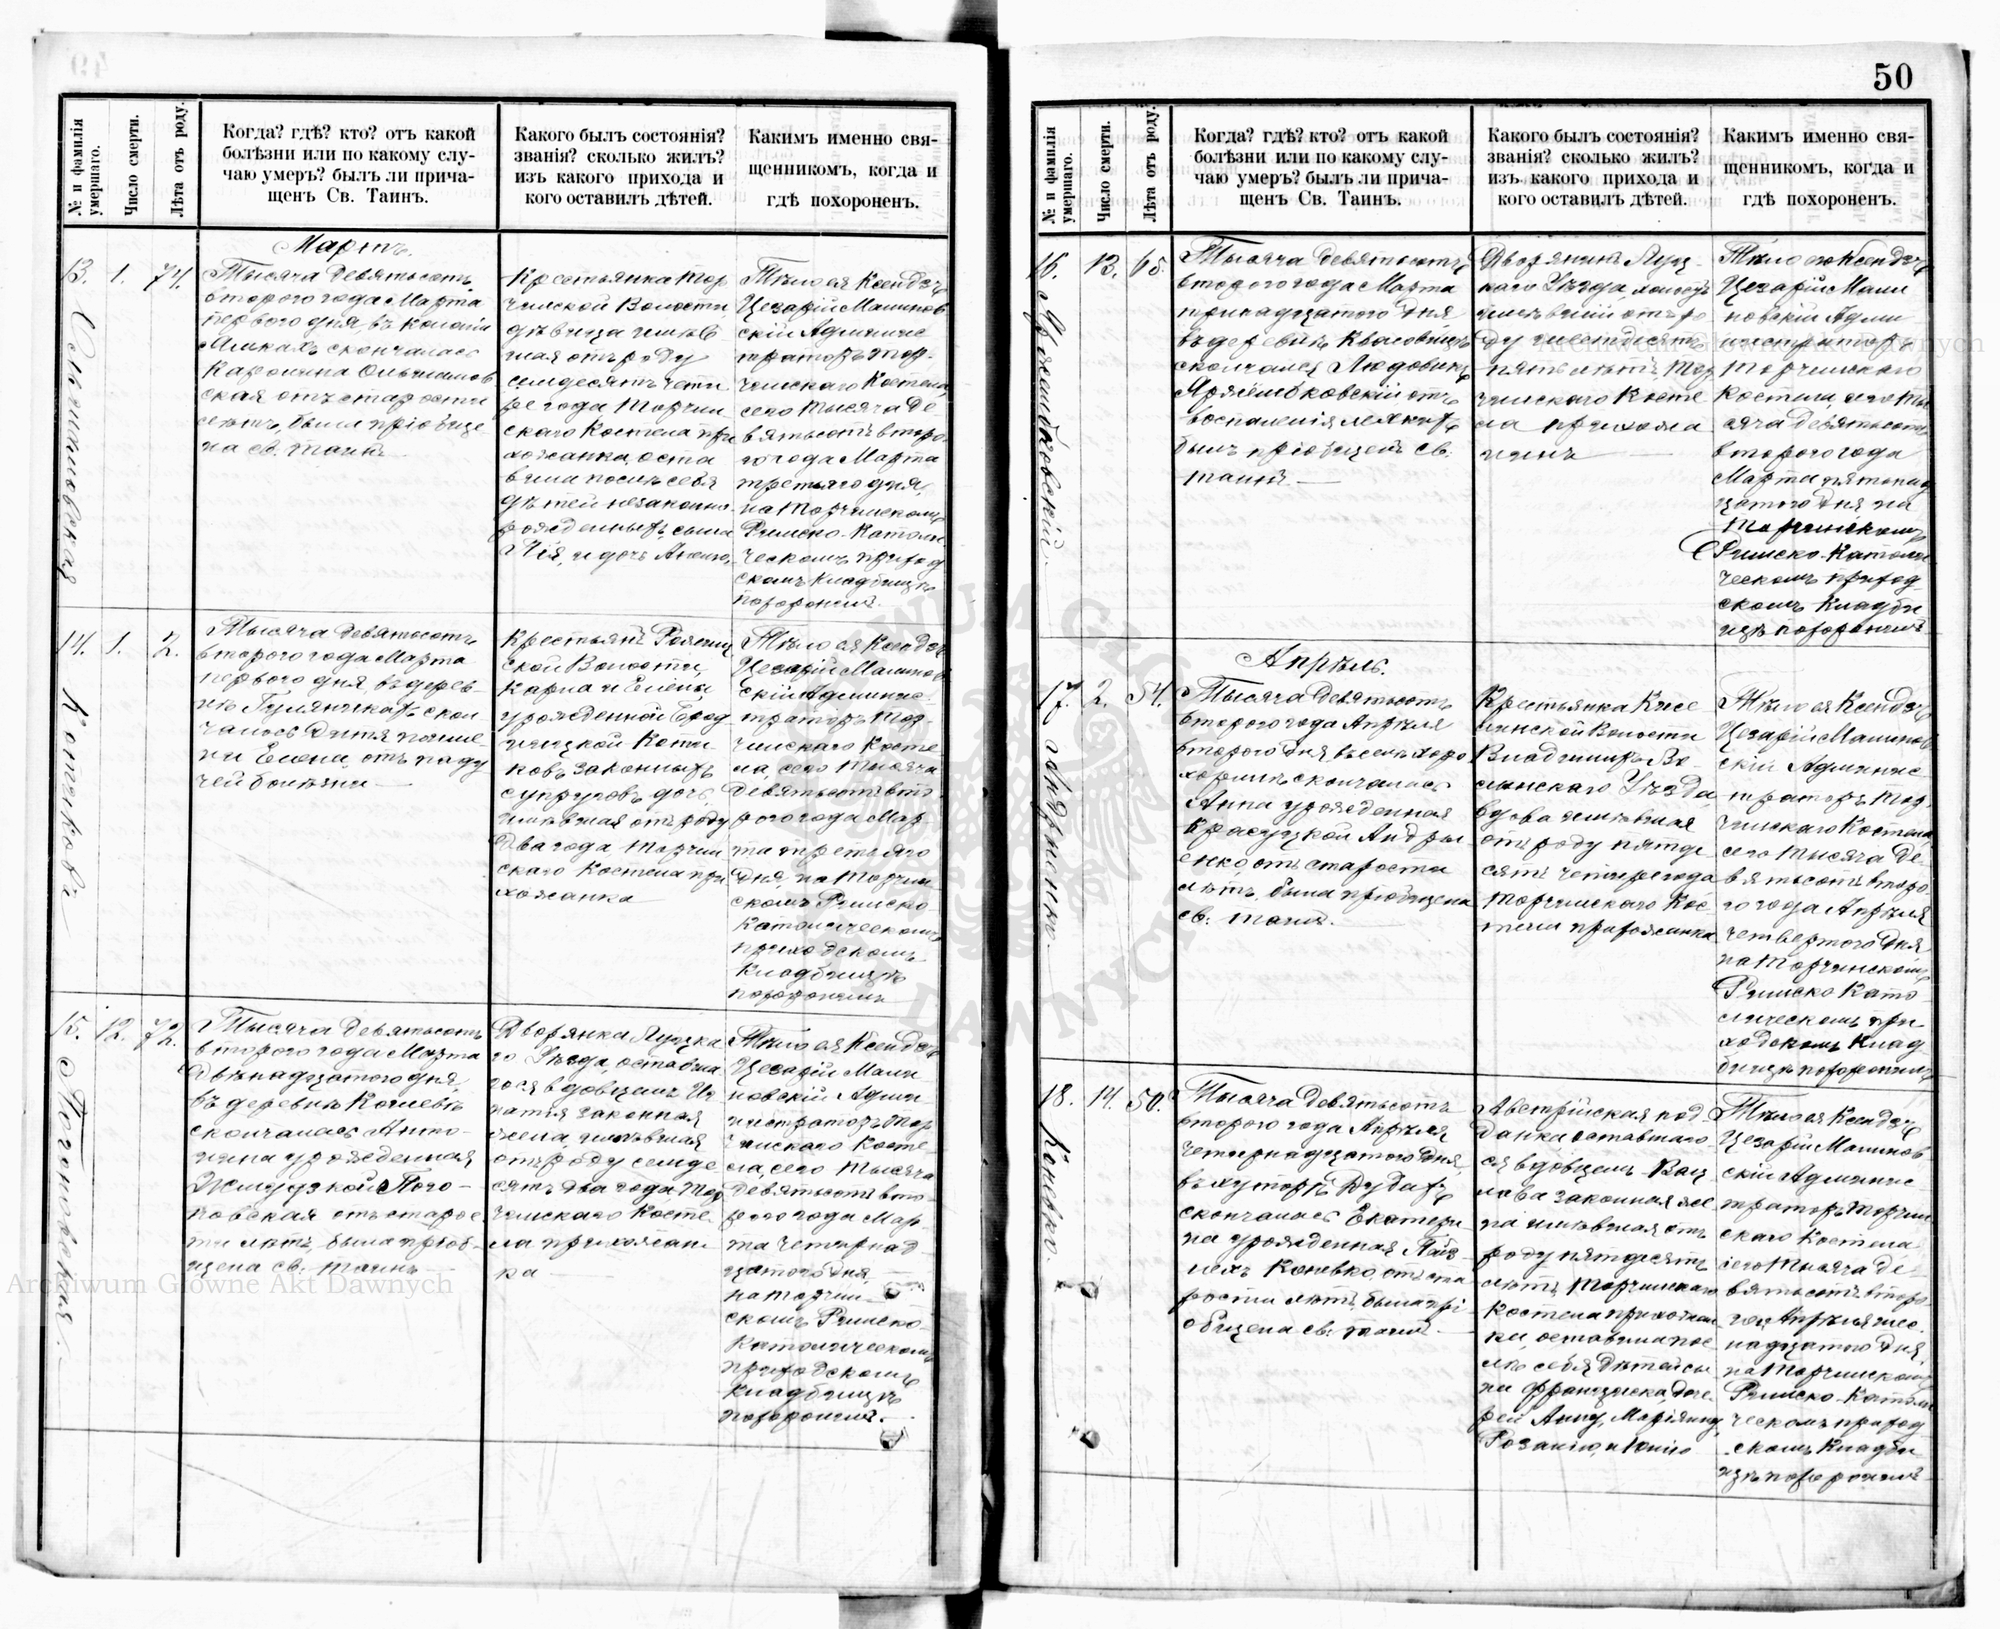 50
№ и фамилія умершаго.
Число смерти.
Лѣта отъ роду.
Когда? гдѣ? кто? отъ какой
болѣзни или по какому слу-
чаю умеръ? былъ ли прича-
щенъ Св. Таинъ.
Какого былъ состоянія?
званія? сколько жилъ?
изъ какого прихода и
кого оставилъ дѣтей.
Какимъ именно свя-
щенникомъ, когда и
гдѣ похороненъ.
Мартъ.
13.
1.
74.
Тысяча девятьсотъ
второго года Марта
первого дня, въ колоніи
скончалась
Каролина
ская отъ старости
лѣтъ, была пріобще
на св. таинъ
Крестьянка Тор
чинской Волости
дѣвица имѣв
шая отъ роду
семдесятъ четы
ре года Торчин
скаго Костела при
хожанка, оста
вила послѣ себя
дѣтей незаконно-
рожденныхъ сына
Тѣло ея Ксендзъ
Цезарій Малинов
скій Админис
траторъ Тор-
чинскаго Костела,
сего тысяча де
вятьсотъ второ
го года Марта
третьяго дня,
на Торчинскомъ
Римско-Католи
ческомъ приход
скомъ кладбищѣ
похоронилъ.
14.
1.
2.
Тысяча девятьсотъ
второго года Марта
первого дня, въ дерев-
нѣ скон
чалось дитя
Елена, отъ паду
чей болѣзни
Крестьянъ
ской Волости,
Карла и Елены,
урожденной
Коти-
ковъ законныхъ
супруговъ дочь,
имѣвшая отъ роду
два года Торчин
скаго Костела при
хожанка
Тѣло ея Ксендзъ
Цезарій Малинов
скій Админис-
траторъ Тор-
чинскаго Косте
ла, сего тысяча
девятьсотъ вто
рого года Мар-
та третьяго
дня, на Торчин
скомъ Римско-
Католическомъ
приходскомъ
кладбищѣ
похоронилъ
15.
12.
72.
Тысяча девятьсотъ
второго года Марта
двѣнадцатого дня,
въ деревнѣ
скончалась Анто-
нина урожденная
отъ старос
ти лѣтъ, была пріоб-
щена св. таинъ
Дворянка Луцка
го Уѣзда, оставша
гося вдовцемъ Иг
натія законная
жена, имѣвшая
отъ роду семде
сятъ два года Тор
чинскаго Косте
ла прихожан
ка
Тѣло ея Ксендзъ
Цезарій Мали
новскій Адми
нистраторъ Тор
чинскаго Косте-
ла, сего тысяча
девятьсотъ вто-
рого года Мар-
та четырнад
цатого дня,
на Торчин
скомъ Римско-
Католическомъ
приходскомъ
кладбищѣ
похоронилъ.
№ и фамилія умершаго.
Число смерти.
Лѣта отъ роду.
Когда? гдѣ? кто? отъ какой
болѣзни или по какому слу-
чаю умеръ? былъ ли прича-
щенъ Св. Таинъ.
Какого былъ состоянія?
званія? сколько жилъ?
изъ какого прихода и
кого оставилъ дѣтей.
Какимъ именно свя-
щенникомъ, когда и
гдѣ похороненъ.
16.
13.
65.
Тысяча девятьсотъ
второго года Марта
тринадцатого дня
въ деревнѣ
скончался Людовикъ
отъ
воспаленія легкихъ
былъ пріобщенъ св:
таинъ
Дворянинъ Луц-
каго Уѣзда, холостъ
имѣвшій отъ ро
ду шестдесятъ
пять лѣтъ, Тор
чинскаго Косте
ла прихожа
нинъ
Тѣло его Ксендзъ
Цезарій Мали
новскій Адми
нистраторъ
Торчинского
Костела, сего ты
сяча девятьсотъ
второго года
Марта пятнад
цатого дня на
Торчинскомъ
Римско-Католи
ческомъ приход
скомъ кладби
щѣ похоронилъ
Апрѣль.
17.
2.
54.
Андриенко.
Тысяча девятьсотъ
второго года Апрѣля
второго дня
скончалась
Анна урожденная
Андри
енко, отъ старости
лѣтъ, была пріобщена
св: таинъ.
Крестьянка Кисе
линской Волости
Владиміръ Во-
лынскаго Уѣзда
вдова имѣвшая
отъ роду пятде
сятъ четыре года
Торчинскаго Кос
тела прихожанка
Тѣло ея Ксендзъ
Цезарій Малинов
скій Админис
траторъ Тор-
чинскаго Костела,
сего тысяча де
вятьсотъ второ
го года Апрѣля
четвертого дня
на Торчинскомъ
Римско Като
лическомъ при
ходскомъ клад
бищѣ похоронилъ
18.
14.
50.
Коневко.
Тысяча девятьсотъ
второго года Апрѣля
четырнадцатого дня,
въ хуторѣ
скончалась Екатери
на урожденная
Коневко, отъ ста
рости лѣтъ, была прі-
общена св: таинъ.
Австрійская под-
данка оставшаго-
ся вдовцемъ Вац
лава законная же
на имѣвшая отъ
роду пятдесятъ
лѣтъ, Торчинскаго
Костела прихожан
ка, оставила пос
лѣ себя дѣтей сы
на Франциска, доче
рей Анну, Маріанну,
Розалію, и Юлію
Тѣло ея Ксендзъ
Цезарій Малинов
скій Админис
траторъ Торчин
скаго Костела
сего тысяча де-
вятьсотъ второ-
го, Апрѣля шес
надцатого дня,
на Торчинскомъ
Римско-Католи
ческомъ приход
скомъ кладби
щѣ похоронилъ
Archiwum Główne Akt Dawnych
Archiwum Główne Akt Dawnych